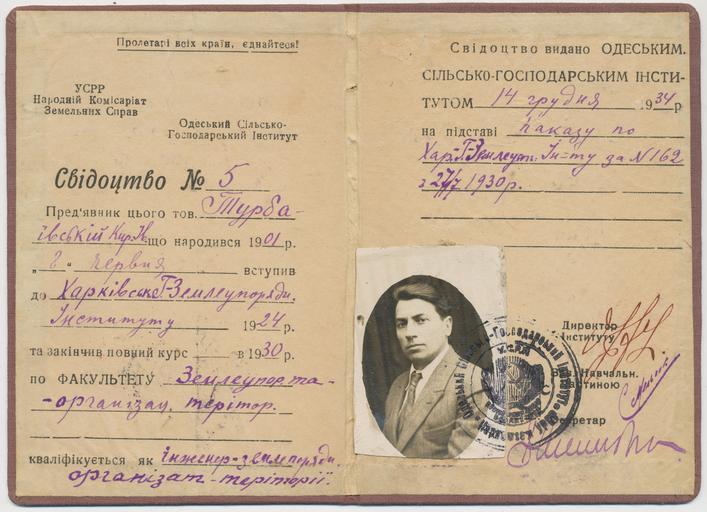 Пролетарі всіх країн, єднайтеся!
УСРР
Народній Комісаріат
Земельних Справ
Одеський Сільсько-
Господарський Інститут
Свідоцтво № 5
Пред'явник цього тов. Турба-
ївській Кир. Ів. що народився 1901 р.
червня вступив
до Харківськ. Г-Землеупорядн.
Інституту 1924 р.
та закінчив повний курс в 1930 р.
по ФАКУЛЬТЕТУ Землеупор. та
-організац. терітор.
кваліфікується як інженер-землпорядн.
організат- терітори.
Свідоцтво видано ОДЕСЬКИМ.
СІЛЬСЬКО-ГОСПОДАРСЬКИМ ІНСТИ-
ТУТОМ 14 грудня 1934 р
на підставі наказу по
Хар.-Г-Землеупт. Ін-ту за N 162
з 27/V 1930 р.
Директор
Інституту
Зав. Навчальн.
Частиною
Секретар